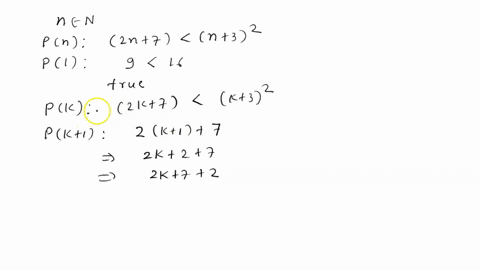 n ∈ N
P(n): (2n+7) < (n+3)²
P(1): 9 < 16
true
P(k): (2k+7) < (k+3)²
P(k+1): 2(k+1)+7
⇒ 2k+2+7
⇒ 2k+7+2